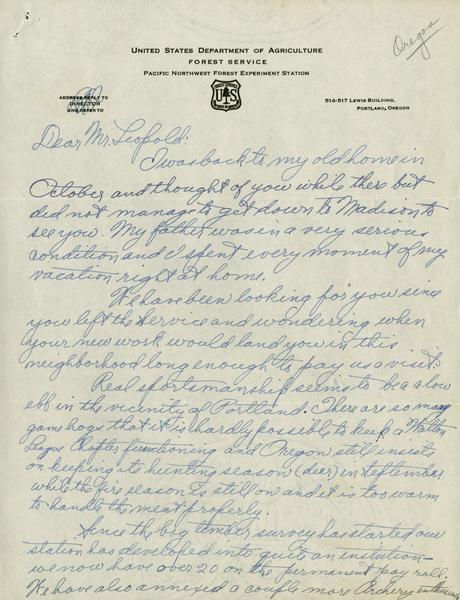 Oregon
UNITED STATES DEPARTMENT OF AGRICULTURE
FOREST SERVICE
PACIFIC NORTHWEST FOREST EXPERIMENT STATION
ADDRESS REPLY TO
DIRECTOR
AND REFER TO
US
514-517 LEWIS BUILDING,
PORTLAND, OREGON
Dear Mr. Leopold:
I was back to my old home in
October and thought of you while there but
did not manage to get down to Madison to
see you. My father was in a very serious
condition and I spent every moment of my
vacation right at home.
We have been looking for you since
you left the Service and wondering when
your new work would land you in this
neighborhood long enough to pay us a visit.
Real sportsmanship seems to be a low
ebb in the vicinity of Portland. There are so many
game hogs that it is hardly possible to keep a Walton
League Chapter functioning and Oregon still insists
on keeping its hunting season (deer) in September
while the fire season is still on and it is too warm
to handle the meat properly.
Since the big timber survey has started our
station has developed into quite an institution
we now have over 20 on the permanent pay roll.
We have also annexed a couple more Archery